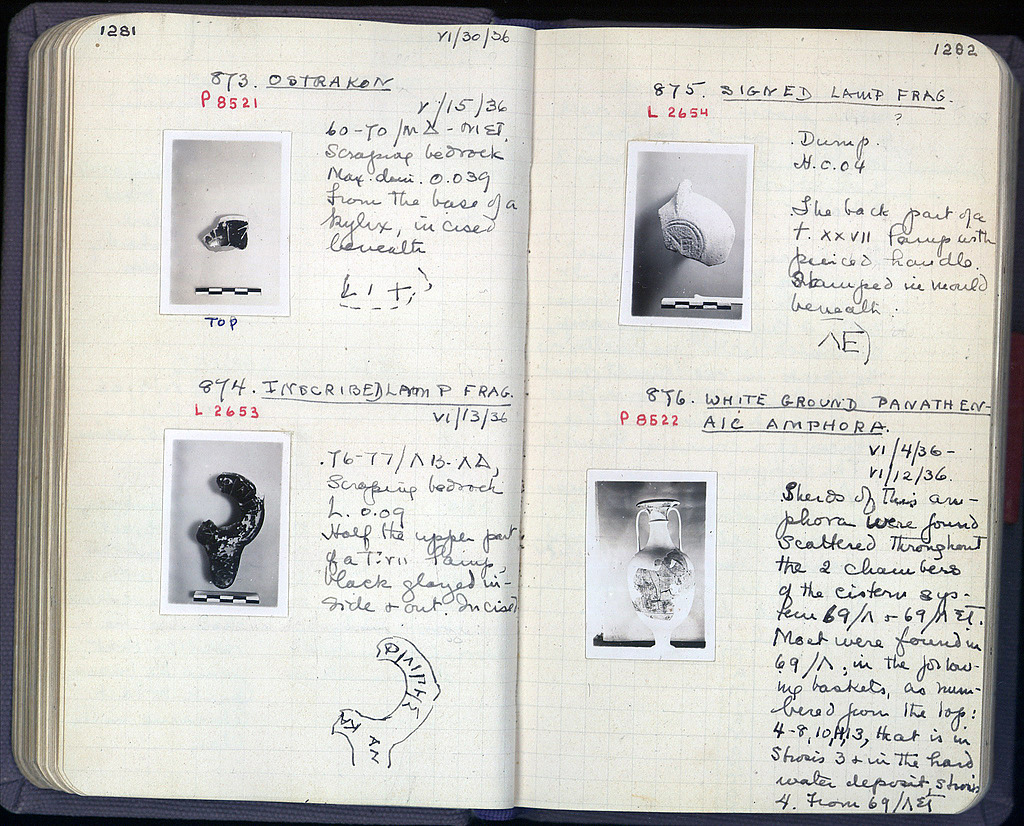 1281
VI/30/36
873. OSTRAKON
P 8521
V/15/36
60-70/ΜΔ-ΜΣΤ.
Scraping bedrock
Max. dim. 0.039
From the base of a
kylix, incised
beneath
TOP
874. INSCRIBED LAMP FRAG.
L 2653
VI/13/36
76-77/ΛΒ-ΛΔ,
Scraping bedrock
L. 0.09
Half the upper part
of a T. VII lamp,
black glazed in-
side + out. Incised
1282
875. SIGNED LAMP FRAG.
L 2654
?
Dump.
H. 0.04
The back part of a
T. XXVII lamp with
pierced handle.
Stamped in mould
beneath:
ΛΕ)
876. WHITE GROUND PANATHEN-
P 8522
AIC AMPHORA.
VI/4/36-
VI/12/36.
Sherds of this am-
phora were found
scattered throughout
the 2 chambers
of the cistern sys-
tem 69/Λ - 69/ΛΣΤ.
Most were found in
69/Λ, in the follow-
ing baskets, as num-
bered from the top:
4-8, 10, 11, 13, that is in
Strosis 3 + in the hard
water deposit, strosis
4. From 69/ΛΣΤ